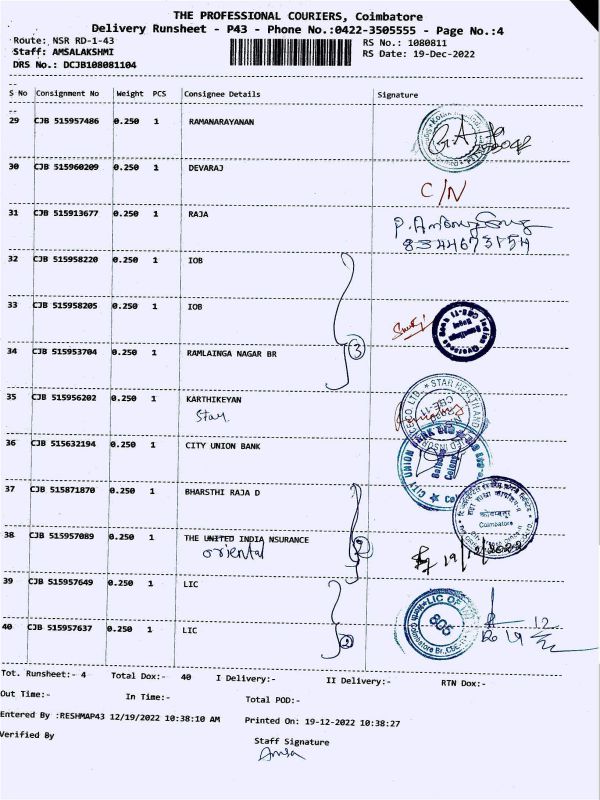 THE PROFESSIONAL COURIERS, Coimbatore
Delivery Runsheet - P43 - Phone No.:0422-3505555 - Page No.:4
Route: NSR RD-1-43 RS No.: 1080811
Staff: AMSALAKSHMI RS Date: 19-Dec-2022
DRS No.: DCJB108081104
S No Consignment No Weight PCS Consignee Details Signature
29 CJB 515957486 0.250 1 RAMANARAYANAN
30 CJB 515960209 0.250 1 DEVARAJ
C/N
31 CJB 515913677 0.250 1 RAJA
8344673154
32 CJB 515958220 0.250 1 IOB
33 CJB 515958205 0.250 1 IOB
34 CJB 515953704 0.250 1 RAMLAINGA NAGAR BR 3
35 CJB 515956202 0.250 1 KARTHIKEYAN
Star
STAR HEALTH AND
36 CJB 515632194 0.250 1 CITY UNION BANK
CITY UNION BANK
37 CJB 515871870 0.250 1 BHARSTHI RAJA D
कोयम्बत्तूर
Coimbatore
38 CJB 515957089 0.250 1 THE UNITED INDIA NSURANCE 2
oriental
39 CJB 515957649 0.250 1 LIC
LIC OF
805
40 CJB 515957637 0.250 1 LIC 2
Tot. Runsheet:- 4 Total Dox:- 40 I Delivery:- II Delivery:- RTN Dox:-
Out Time:- In Time:- Total POD:-
Entered By :RESHMAP43 12/19/2022 10:38:10 AM Printed On: 19-12-2022 10:38:27
Verified By Staff Signature
Amsa